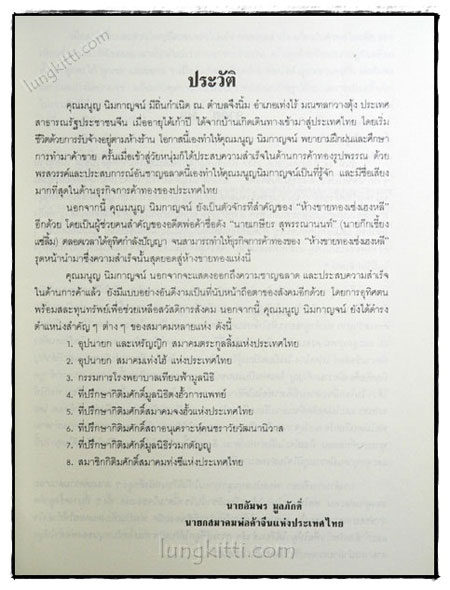 lungkitti.com
ประวัติ
คุณมนูญ นิมกาญจน์ มีถิ่นกำเนิด ณ. ตำบลจึงนิ้ม อำเภอเท่งไร้ มณฑลกวางตุ้ง ประเทศ
สาธารณรัฐประชาชนจีน เมื่ออายุได้เก้าปี ได้จากบ้านเกิดเดินทางเข้ามาสู่ประเทศไทย โดยเริ่ม
ชีวิตด้วยการรับจ้างอยู่ตามห้างร้าน โอกาสนี้เองทำให้คุณมนูญ นิมกาญจน์ พยายามฝึกฝนและศึกษา
การทำมาค้าขาย ครั้นเมื่อเข้าสู่วัยหนุ่มก็ได้ประสบความสำเร็จในด้านการค้าทองรูปพรรณ ด้วย
พรสวรรค์และประสบการณ์อันชาญฉลาดนี้เองทำให้คุณมนูญ นิมกาญจน์เป็นที่รู้จัก และมีชื่อเสียง
มากที่สุดในด้านธุรกิจการค้าทองของประเทศไทย
นอกจากนี้ คุณมนูญ นิมกาญจน์ ยังเป็นตัวจักรที่สำคัญของ "ห้างขายทองเซ่งเฮงหลี"
อีกด้วย โดยเป็นผู้ช่วยคนสำคัญของอดีตพ่อค้าชื่อดัง "นายเกษียร สุพรรณานนท์" (นายก๊กเชี้ยง
แซ่ลิ้ม) ตลอดเวลาได้อุทิศกำลังปัญญา จนสามารถทำให้ธุรกิจการค้าทองของ "ห้างขายทองเซ่งเฮงหลี"
รุดหน้านำมาซึ่งความสำเร็จนั้นสุดยอดสู่ห้างขายทองแห่งนี้
คุณมนูญ นิมกาญจน์ นอกจากจะแสดงออกถึงความชาญฉลาด และประสบความสำเร็จ
ในด้านการค้าแล้ว ยังมีแบบอย่างอันดีงามเป็นที่นับหน้าถือตาของสังคมอีกด้วย โดยการอุทิศตน
พร้อมสละทุนทรัพย์เพื่อช่วยเหลือสวัสดิการสังคม นอกจากนี้ คุณมนูญ นิมกาญจน์ ยังได้ดำรง
ตำแหน่งสำคัญๆ ต่างๆ ของสมาคมหลายแห่ง ดังนี้
1. อุปนายก และเหรัญญิก สมาคมตระกูลลิ้มแห่งประเทศไทย
2. อุปนายก สมาคมเท่งไฮ้ แห่งประเทศไทย
3. กรรมการโรงพยาบาลเทียนฟ้ามูลนิธิ
4. ที่ปรึกษากิติมศักดิ์มูลนิธิตงฮั้วการแพทย์
5. ที่ปรึกษากิติมศักดิ์สมาคมจงฮั้วแห่งประเทศไทย
6. ที่ปรึกษากิติมศักดิ์สถาอนุเคราะห์คนชราวัยวัฒนานิวาส
7. ที่ปรึกษากิติมศักดิ์มูลนิธิร่วมกตัญญู
8. สมาชิกกิติมศักดิ์สมาคมท่งซีแห่งประเทศไทย
นายอัมพร มูลภักดิ์
นายกสมาคมพ่อค้าจีนแห่งประเทศไทย
lungkitti.com